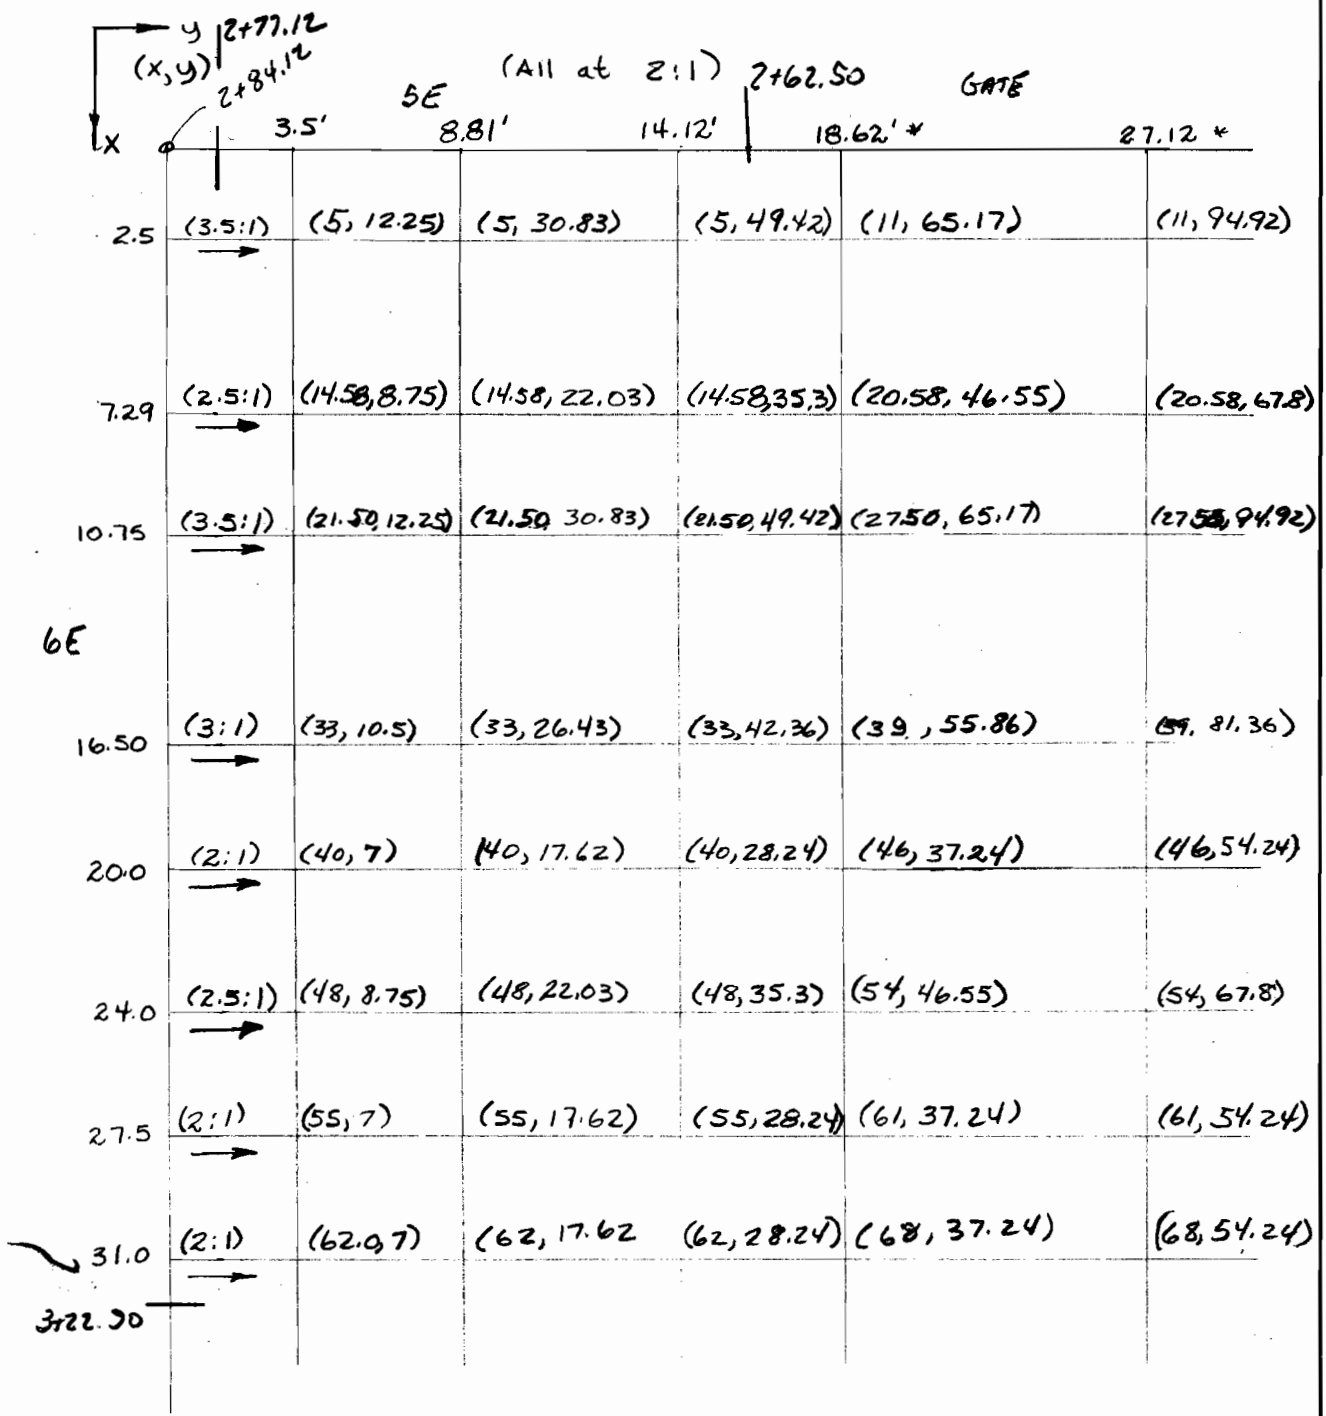 y 2+77.12
(x,y)
2+84.12
(All at 2:1) 2+62.50
5E GATE
x 3.5' 8.81' 14.12' 18.62' * 27.12 *
2.5 (3.5:1) (5, 12.25) (5, 30.83) (5, 49.42) (11, 65.17) (11, 94.92)
7.29 (2.5:1) (14.58, 8.75) (14.58, 22.03) (14.58, 35.3) (20.58, 46.55) (20.58, 67.8)
10.75 (3.5:1) (21.50, 12.25) (21.50 30.83) (21.50, 49.42) (27.50, 65.17) (27.50, 94.92)
6E
16.50 (3:1) (33, 10.5) (33, 26.43) (33, 42.36) (39, 55.86) (39, 81.36)
20.0 (2:1) (40, 7) (40, 17.62) (40, 28.24) (46, 37.24) (46, 54.24)
24.0 (2.5:1) (48, 8.75) (48, 22.03) (48, 35.3) (54, 46.55) (54, 67.8)
27.5 (2:1) (55, 7) (55, 17.62) (55, 28.24) (61, 37.24) (61, 54.24)
31.0 (2:1) (62.0, 7) (62, 17.62 (62, 28.24) (68, 37.24) (68, 54.24)
3+22.90